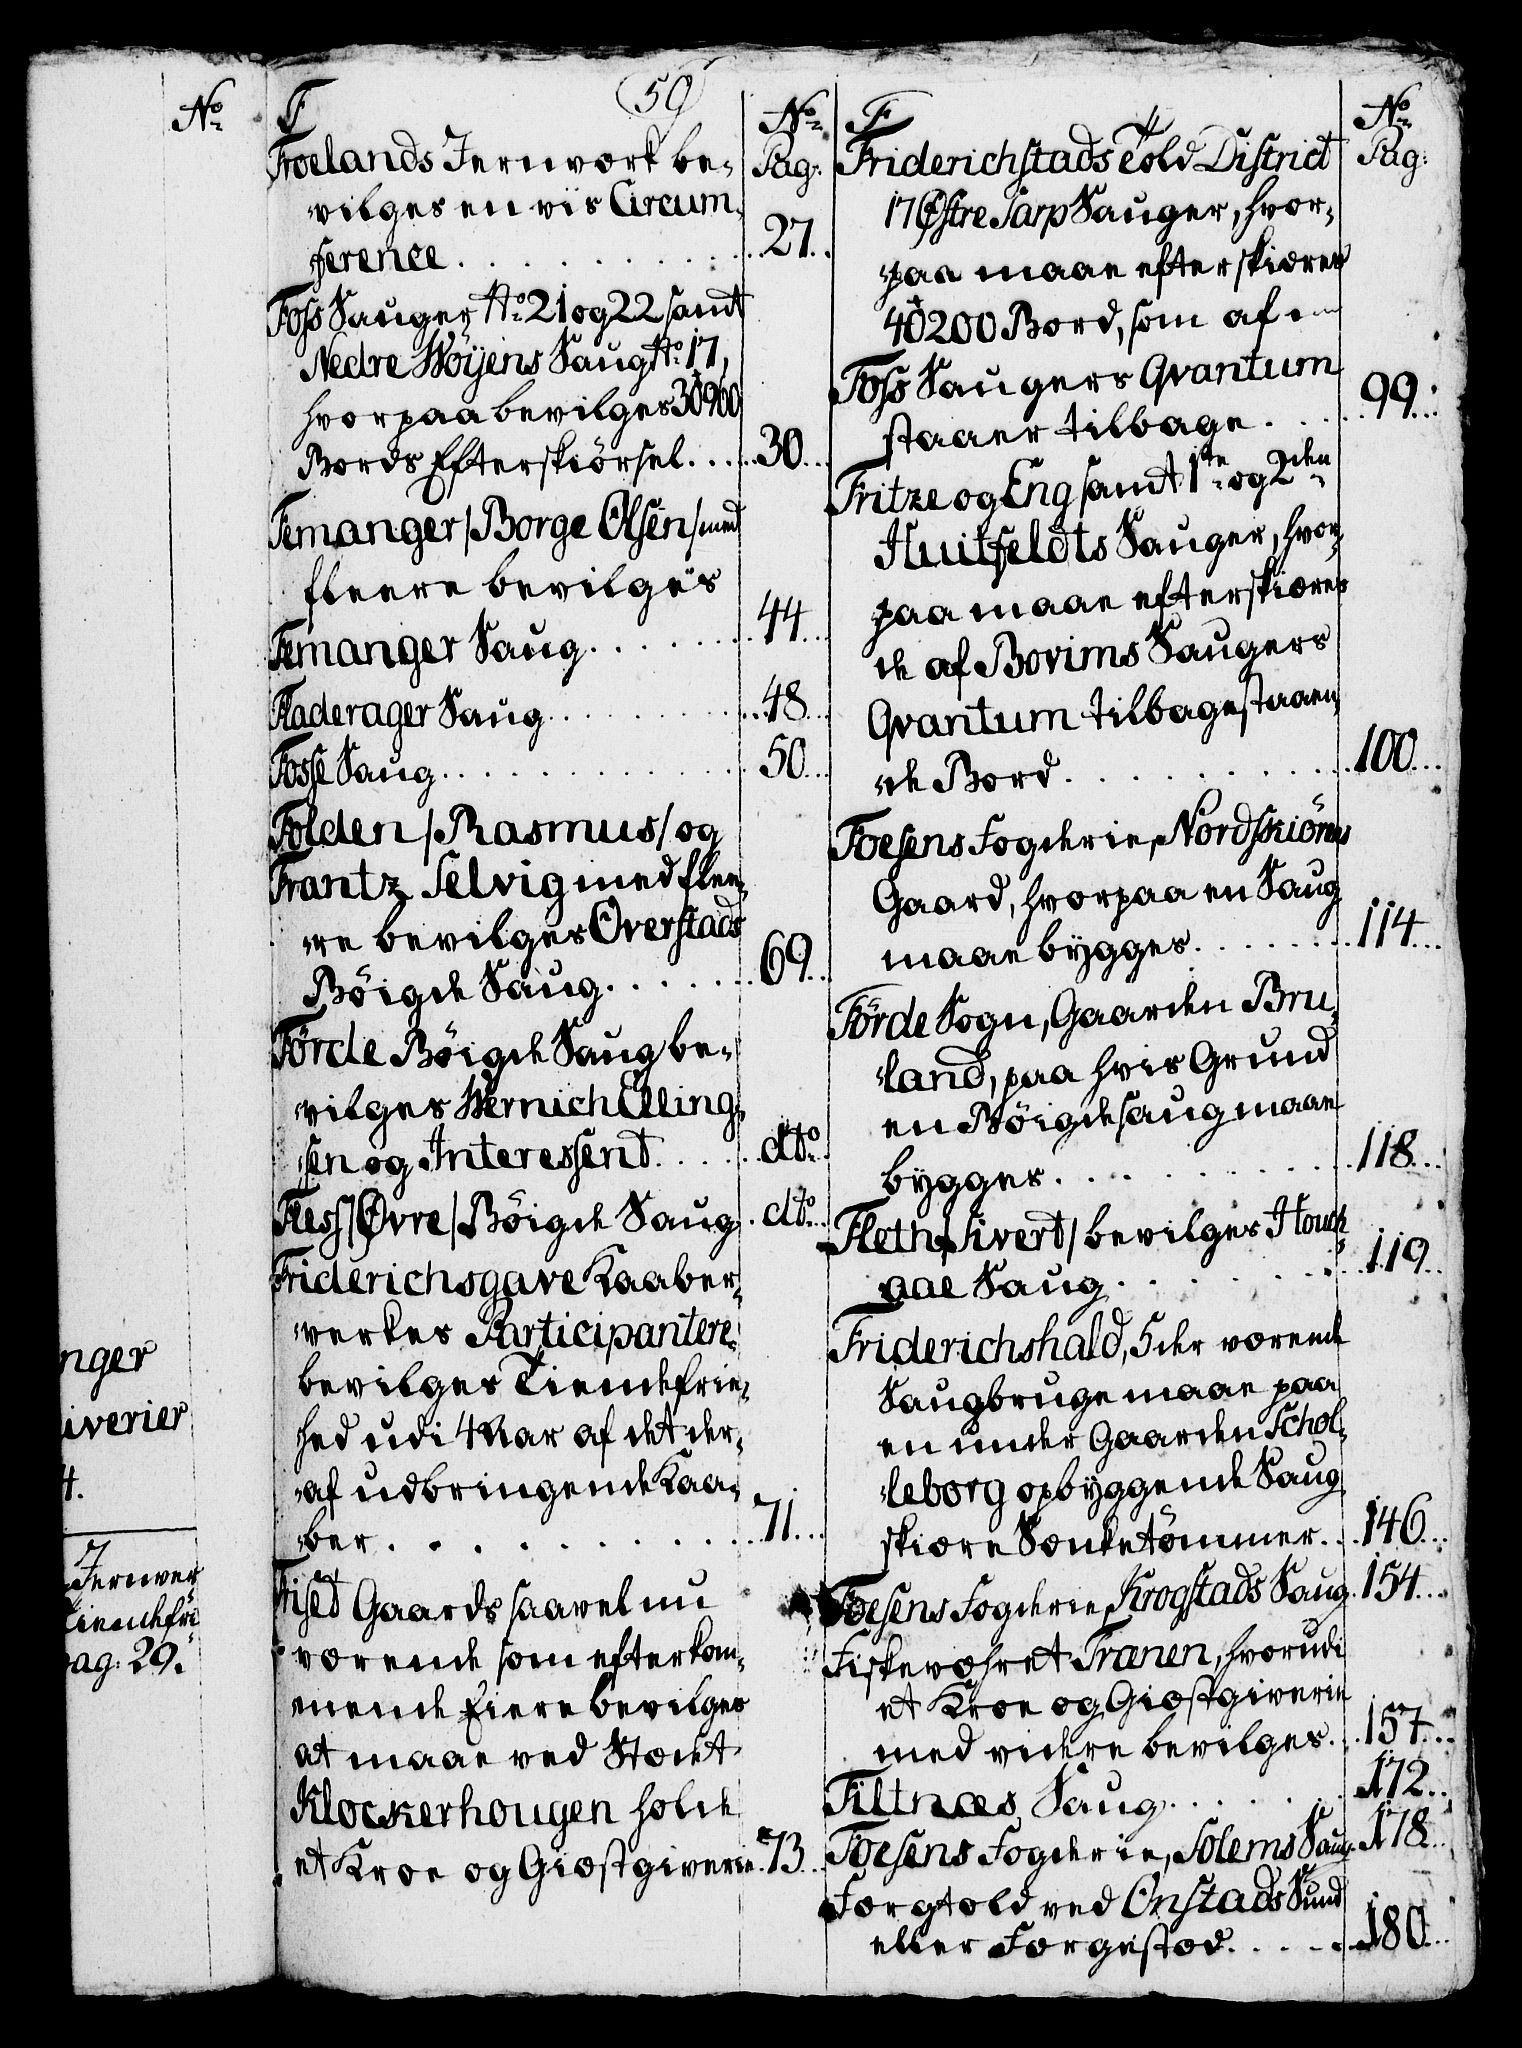 No
nger
iverier
4.
Jernver
Tiendefri
pag: 29.
59
F
No
Pag:
Froelands Jernværk be-
vilges en vis Circum-
ference 27
Foss Sauger No 21 og 22 samt
Nedre Wöyens Saug No 17,
hvorpaa bevilges 30960
Bords Efterskiörsel 30
Femanger /Borge Olsen/ med
fleere bevilges
Femanger Saug 44
Fladerager Saug 48
Fosse Saug 50
Folden /Rasmus/ og
Frantz Selvig med flee-
re bevilges Overstads
Böigde Saug 69
Förde Böigde Saug be-
vilges Wernich Elling-
sen og Interessent dto
Fless /Øvre/ Böigde Saug dto
Friderichsgave Kaaber-
verkes Participantere
bevilges Tiendefrie-
hed udi 4 Aar af det der-
af udbringende Kaa-
ber 71
Fiset Gaards saavel nu
værende som efterkom-
mende Eiere bevilges
at maae ved Stædet
Klockerhougen holde
et Kroe og Giæstgiverie 73
F
No
Pag:
Friderichstads Told District
17 Østre Sarp Sauger, hvor-
paa maae efterskiæres
40200 Bord, som af
Foss Saugers Qvantum
staaer tilbage 99
Fritze og Eng samt 1ste og 2den
Huitfeldts Sauger, hvor-
paa maae efterskiæres
de af Bovims Saugers
Qvantum tilbagestaaen-
de Bord 100
Foesens Fogderie, Nordskiörns
Gaard, hvorpaa en Saug
maae bygges 114
Förde Sogn, Gaarden Bru-
land, paa hvis Grund
en Böigdesaug maae
bygges 118
Fleth /Sivert/ bevilges Houch-
aae Saug 119
Friderichshald, 5 der værende
Saugbruge maae paa
en under Gaarden Schol-
leborg opbyggende Saug
skiære Sænketömmer 146
Foesens Fogderie, Krogstads Saug 154
Fiskevæhret Trænen, hvorudi
et Kroe og Giæstgiverie
med videre bevilges 157
Filtnæs Saug 172
Foesens Fogderie, Solems Saug 178
Færgtold ved Onstads Sund
eller Færgestæd 180